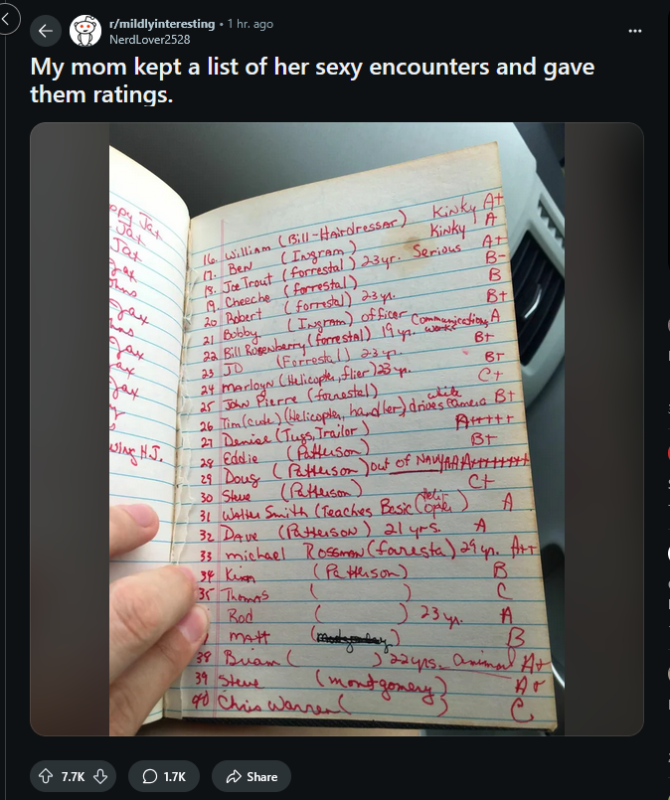 r/mildlyinteresting • 1 hr. ago
NerdLover2528
My mom kept a list of her sexy encounters and gave
them ratings.
ppy Jax
Jax
Jax
Jax
Jax
Jax
Jax
Jax
wing H.J.
16. William (Bill-Hairdresser) Kinky A+
17. Ben (Ingram) Kinky A
18. Joe Trout (forrestal) 23yr. Serious A+
19. Cheeche (forrestal) B-
20 Robert (forrestal) 23 yr. B
21 Bobby (Ingram) officer B+
22 Bill Rosenberry (forrestal) 19 yr. Communications works A
23 JD (Forrestal) 23 yr. B+
24 Marloyn (Helicopter, flier) 23 yr. B+
25 John Pierre (forrestal) C+
26 Tim (cute) (Helicopter, handler) drives white Camero B+
27 Denise (Tugs, Trailor) A+++++
28 Eddie (Patterson) B+
29 Doug (Patterson) out of NAVY
30 Steve (Patterson) C+
31 Walter Smith (Teaches Basic) A
32 Dave (Patterson) 21 yrs. A
33 michael Rossman (foresta) 29 yr. A++
34 Kim (Patterson) B
35 Thomas ( ) C
Rod ( ) 23 yr. A
MATT ( ) B
38 Brian ( ) 22 yrs. animal A+
39 Steve (montgomery) A+
40 Chris Warren ( ) C
7.7K
1.7K
Share